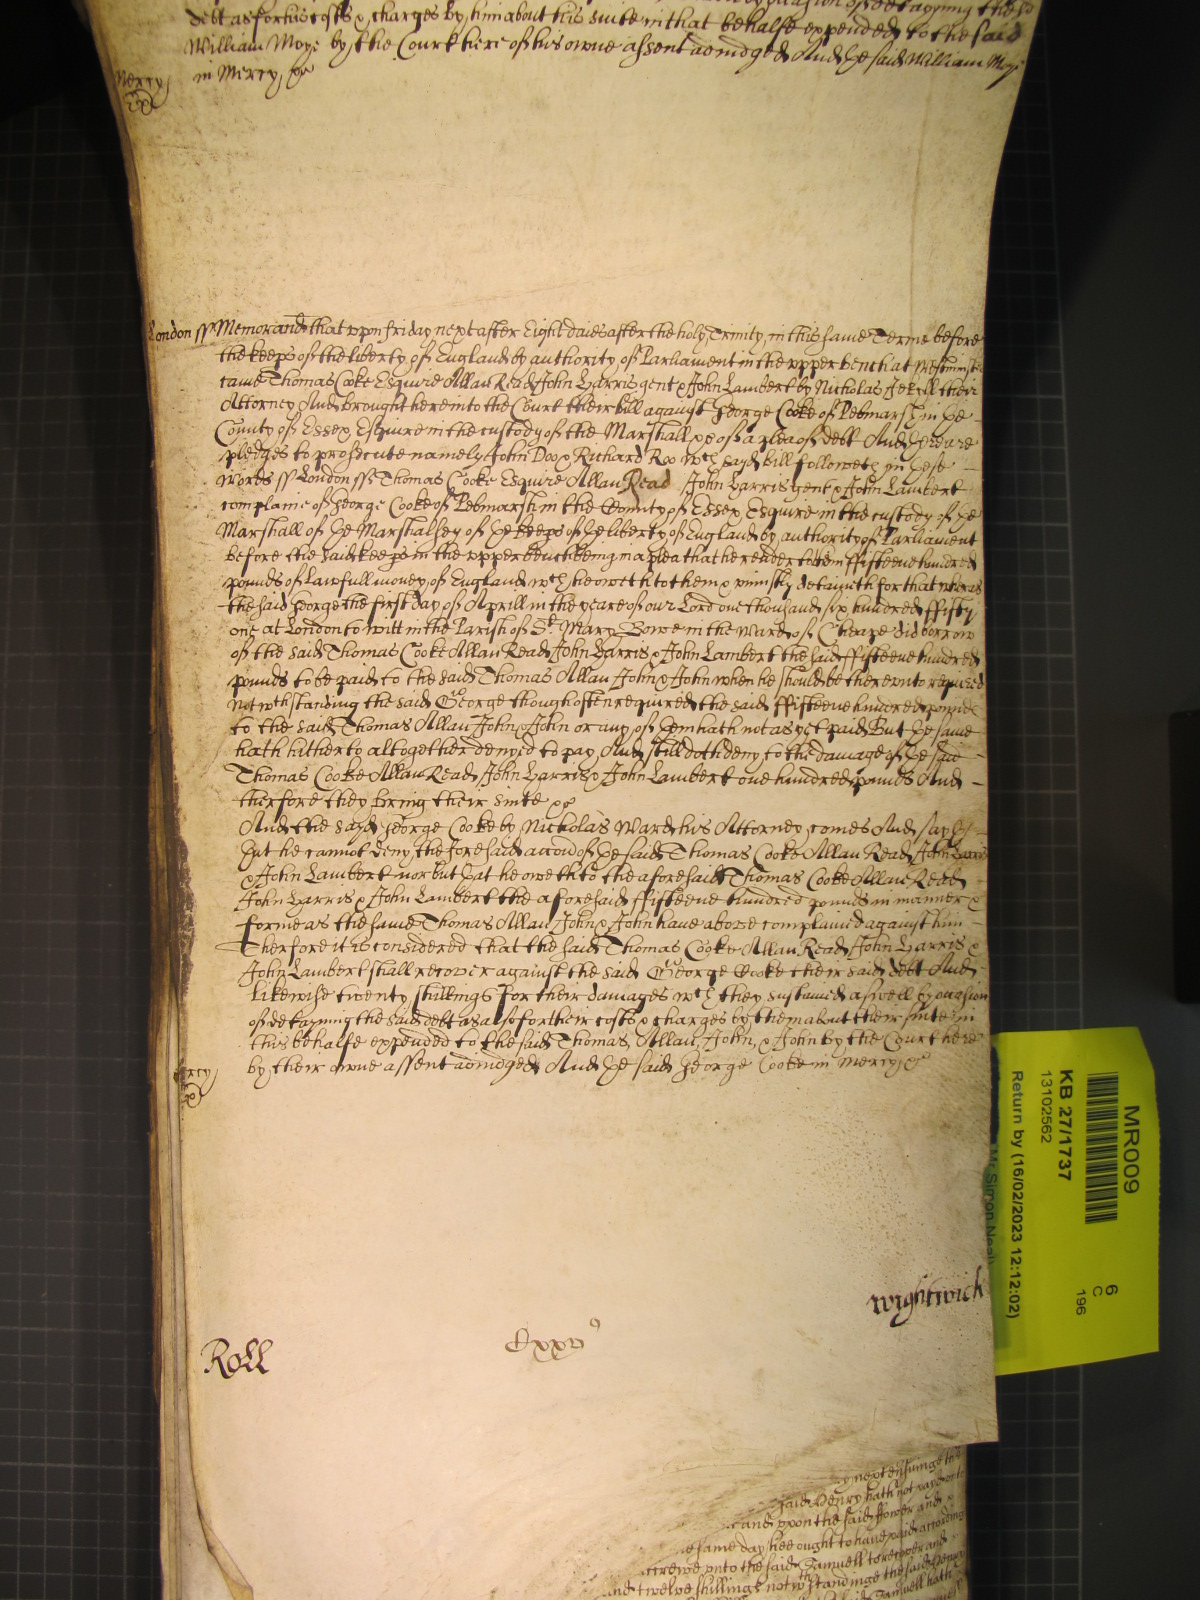 debt as for his costs & charges by him about his suite in that behalfe expended to the said
William Moye by the Court here of his owne assent adiudged And ye said William Moye
Mercy in Mercy &c
London ss Memorand that upon friday next after Eight daies after the holy Trinity in this same Terme before
the keeps of the liberty of England by authority of Parliament in the upper bench at Westminster
came Thomas Cooke Esquire Allan Read John Harris gent & John Lambert by Nicholas Jekyll their
Attorney And brought here into the Court their bill against George Cooke of Pebmarsh in ye
County of Essex Esquire in the custody of the Marshall &c of a plea of debt And there are
pledges to prosecute namely John Doo & Richard Roo wch sayd bill followeth in these
words ss London ss Thomas Cooke Esquire Allan Read John Harris gent & John Lambert
complaine of George Cooke of Pebmarsh in the County of Essex Esquire in the custody of ye
Marshall of ye Marshalsey of ye keeps of ye liberty of England by authority of Parliament
before the said keeps in the upper bench being in a plea that he render to them ffifteene hundred
pounds of lawfull money of England wch he oweth to them & uniustly detaineth for that whereas
the said George the first day of Aprill in the yeare of our Lord one thousand six hundred ffifty
one at London to witt in the Parish of St Mary Bowe in the Ward of Cheape did borrow
of the said Thomas Cooke Allan Read John Harris & John Lambert the said ffifteene hundred
pounds to be paid to the said Thomas Allan John & John when he should be thereunto required
Notwthstanding the said George though often required the said ffifteene hundred pounds
to the said Thomas Allan John & John or any of them hath not as yet paid But ye same
hath hitherto altogether denyed to pay And still doth deny to the damage of ye said
Thomas Cooke Allan Read John Harris & John Lambert one hundred pounds And
therfore they bring their suite &c
And the sayd George Cooke by Nicholas Ward his Attorney comes And sayth
yat he cannot deny the foresaid accion of ye said Thomas Cooke Allan Read John Harris
& John Lambert nor but yat he oweth to the aforesaid Thomas Cooke Allan Read
John Harris & John Lambert the aforesaid ffifteene hundred pounds in manner &
forme as the same Thomas Allan John & John have above complained against him
Therfore it is considered that the said Thomas Cooke Allan Read John Harris &
John Lambert shall recover against the said George Cooke their said debt And
likewise twenty shillings for their damages wch they sustained aswell by occasion
of detayning the said debt as also for their costs & charges by them about their suite in
this behalfe expended to the said Thomas, Allan, John, & John by the Court here
by their owne assent adiudged And ye said George Cooke in mercy &c
wightwick
Roll
Cxxv
MR009
KB 27/1737
13102562
Return by (16/02/2023 12:12:02)
Mr Simon Neal
6
C
196
next ensuinge the
said Henry hath not payd
and upon the said ffower and
same day hee ought to have paid according
unto the said Samuell to recover and
and twelve shillings notwthstandinge the said Henry
said Samuell hath